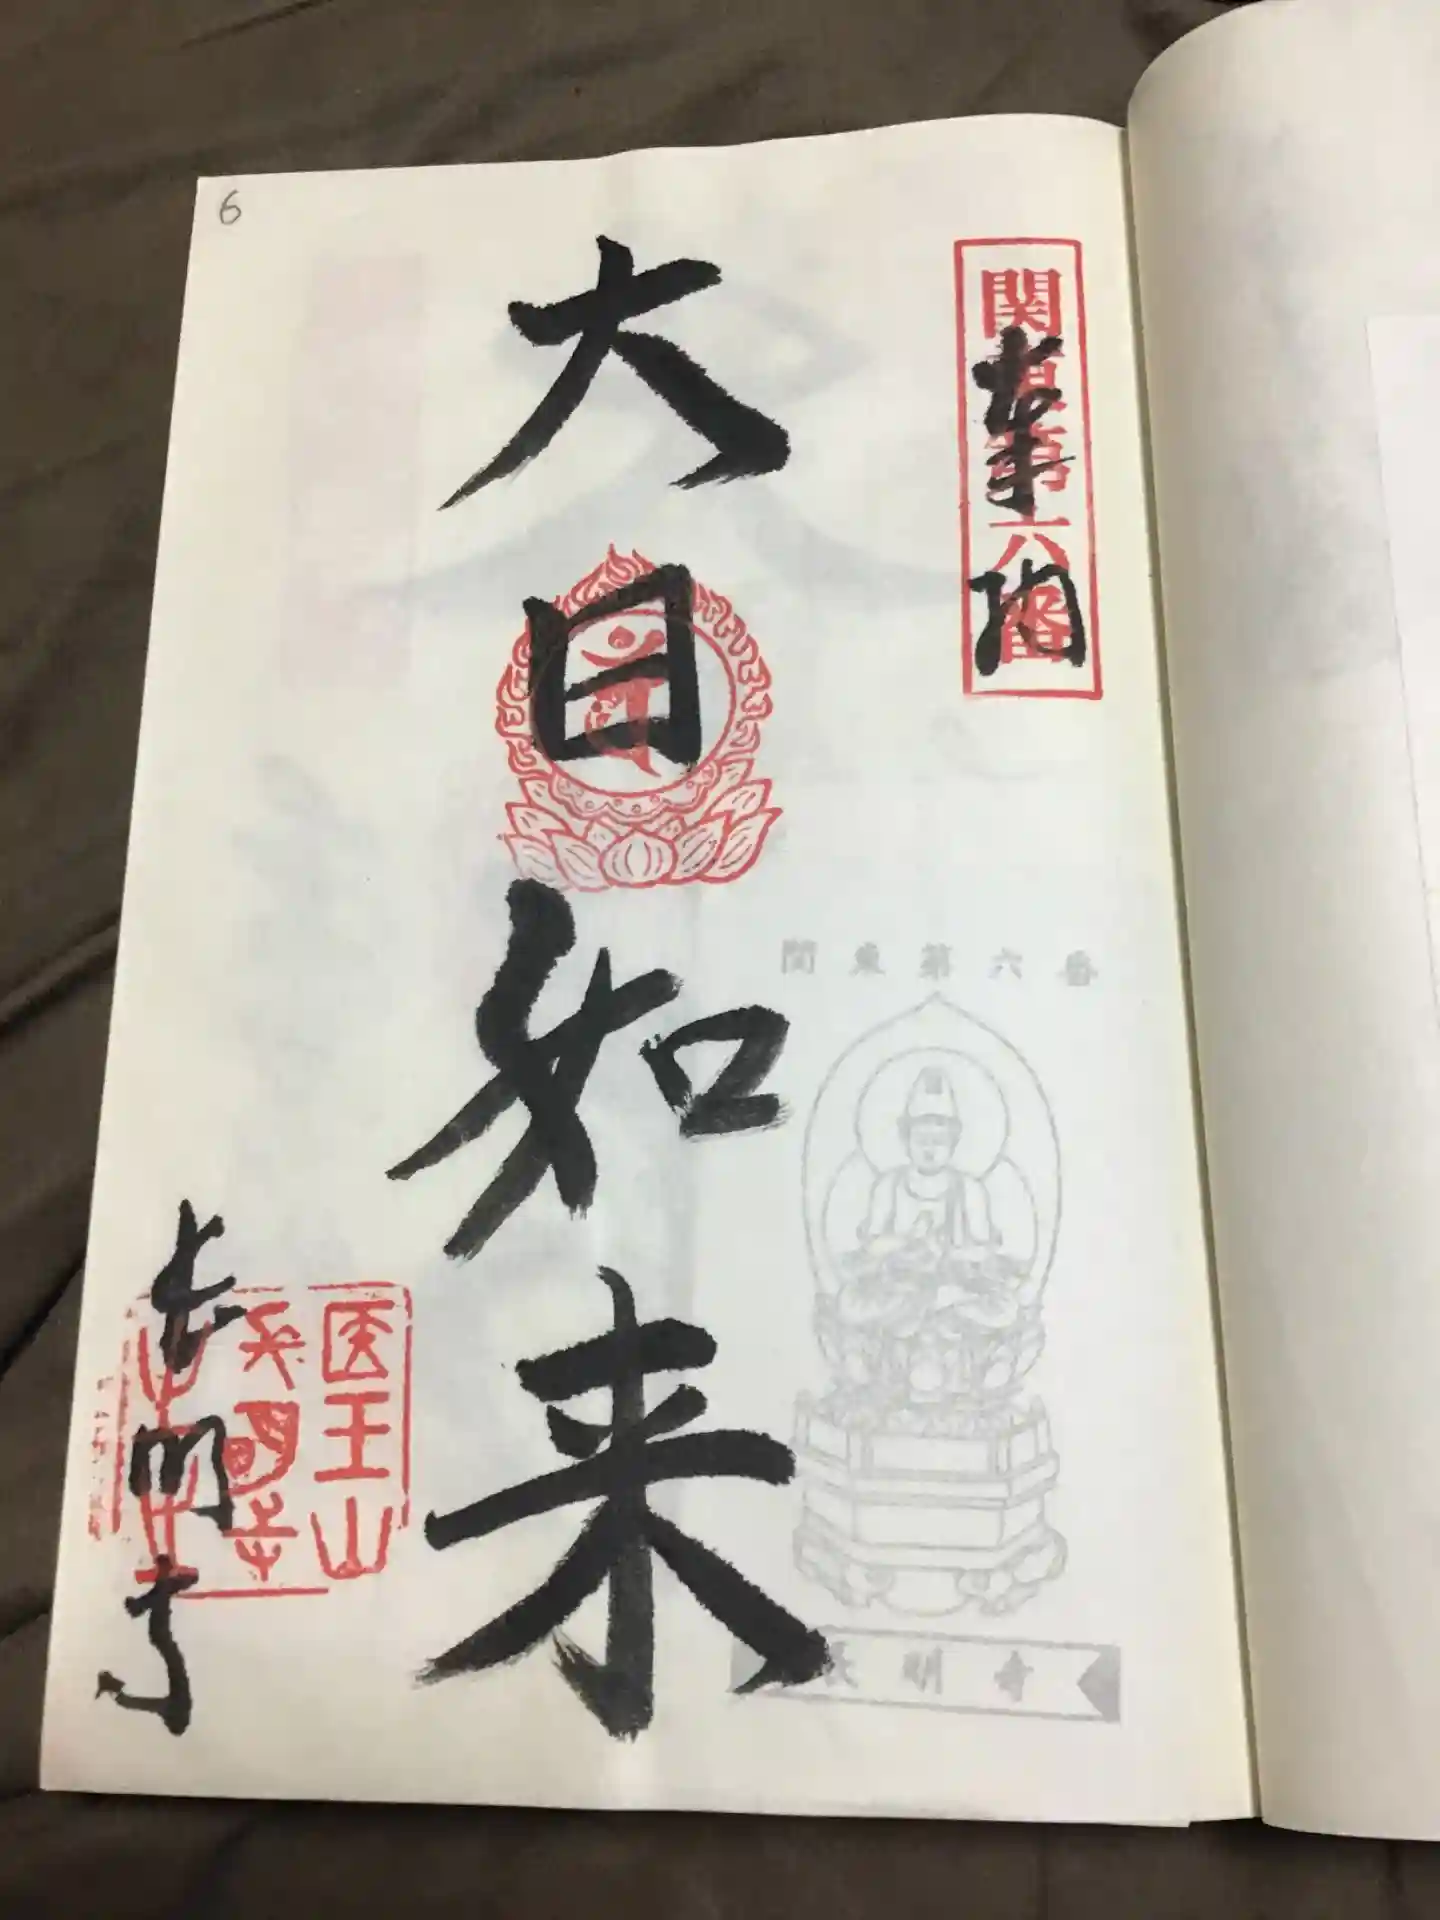 6
関東第六番
奉拝
大日如来
関東第六番
長明寺
医王山
長明寺
長明寺